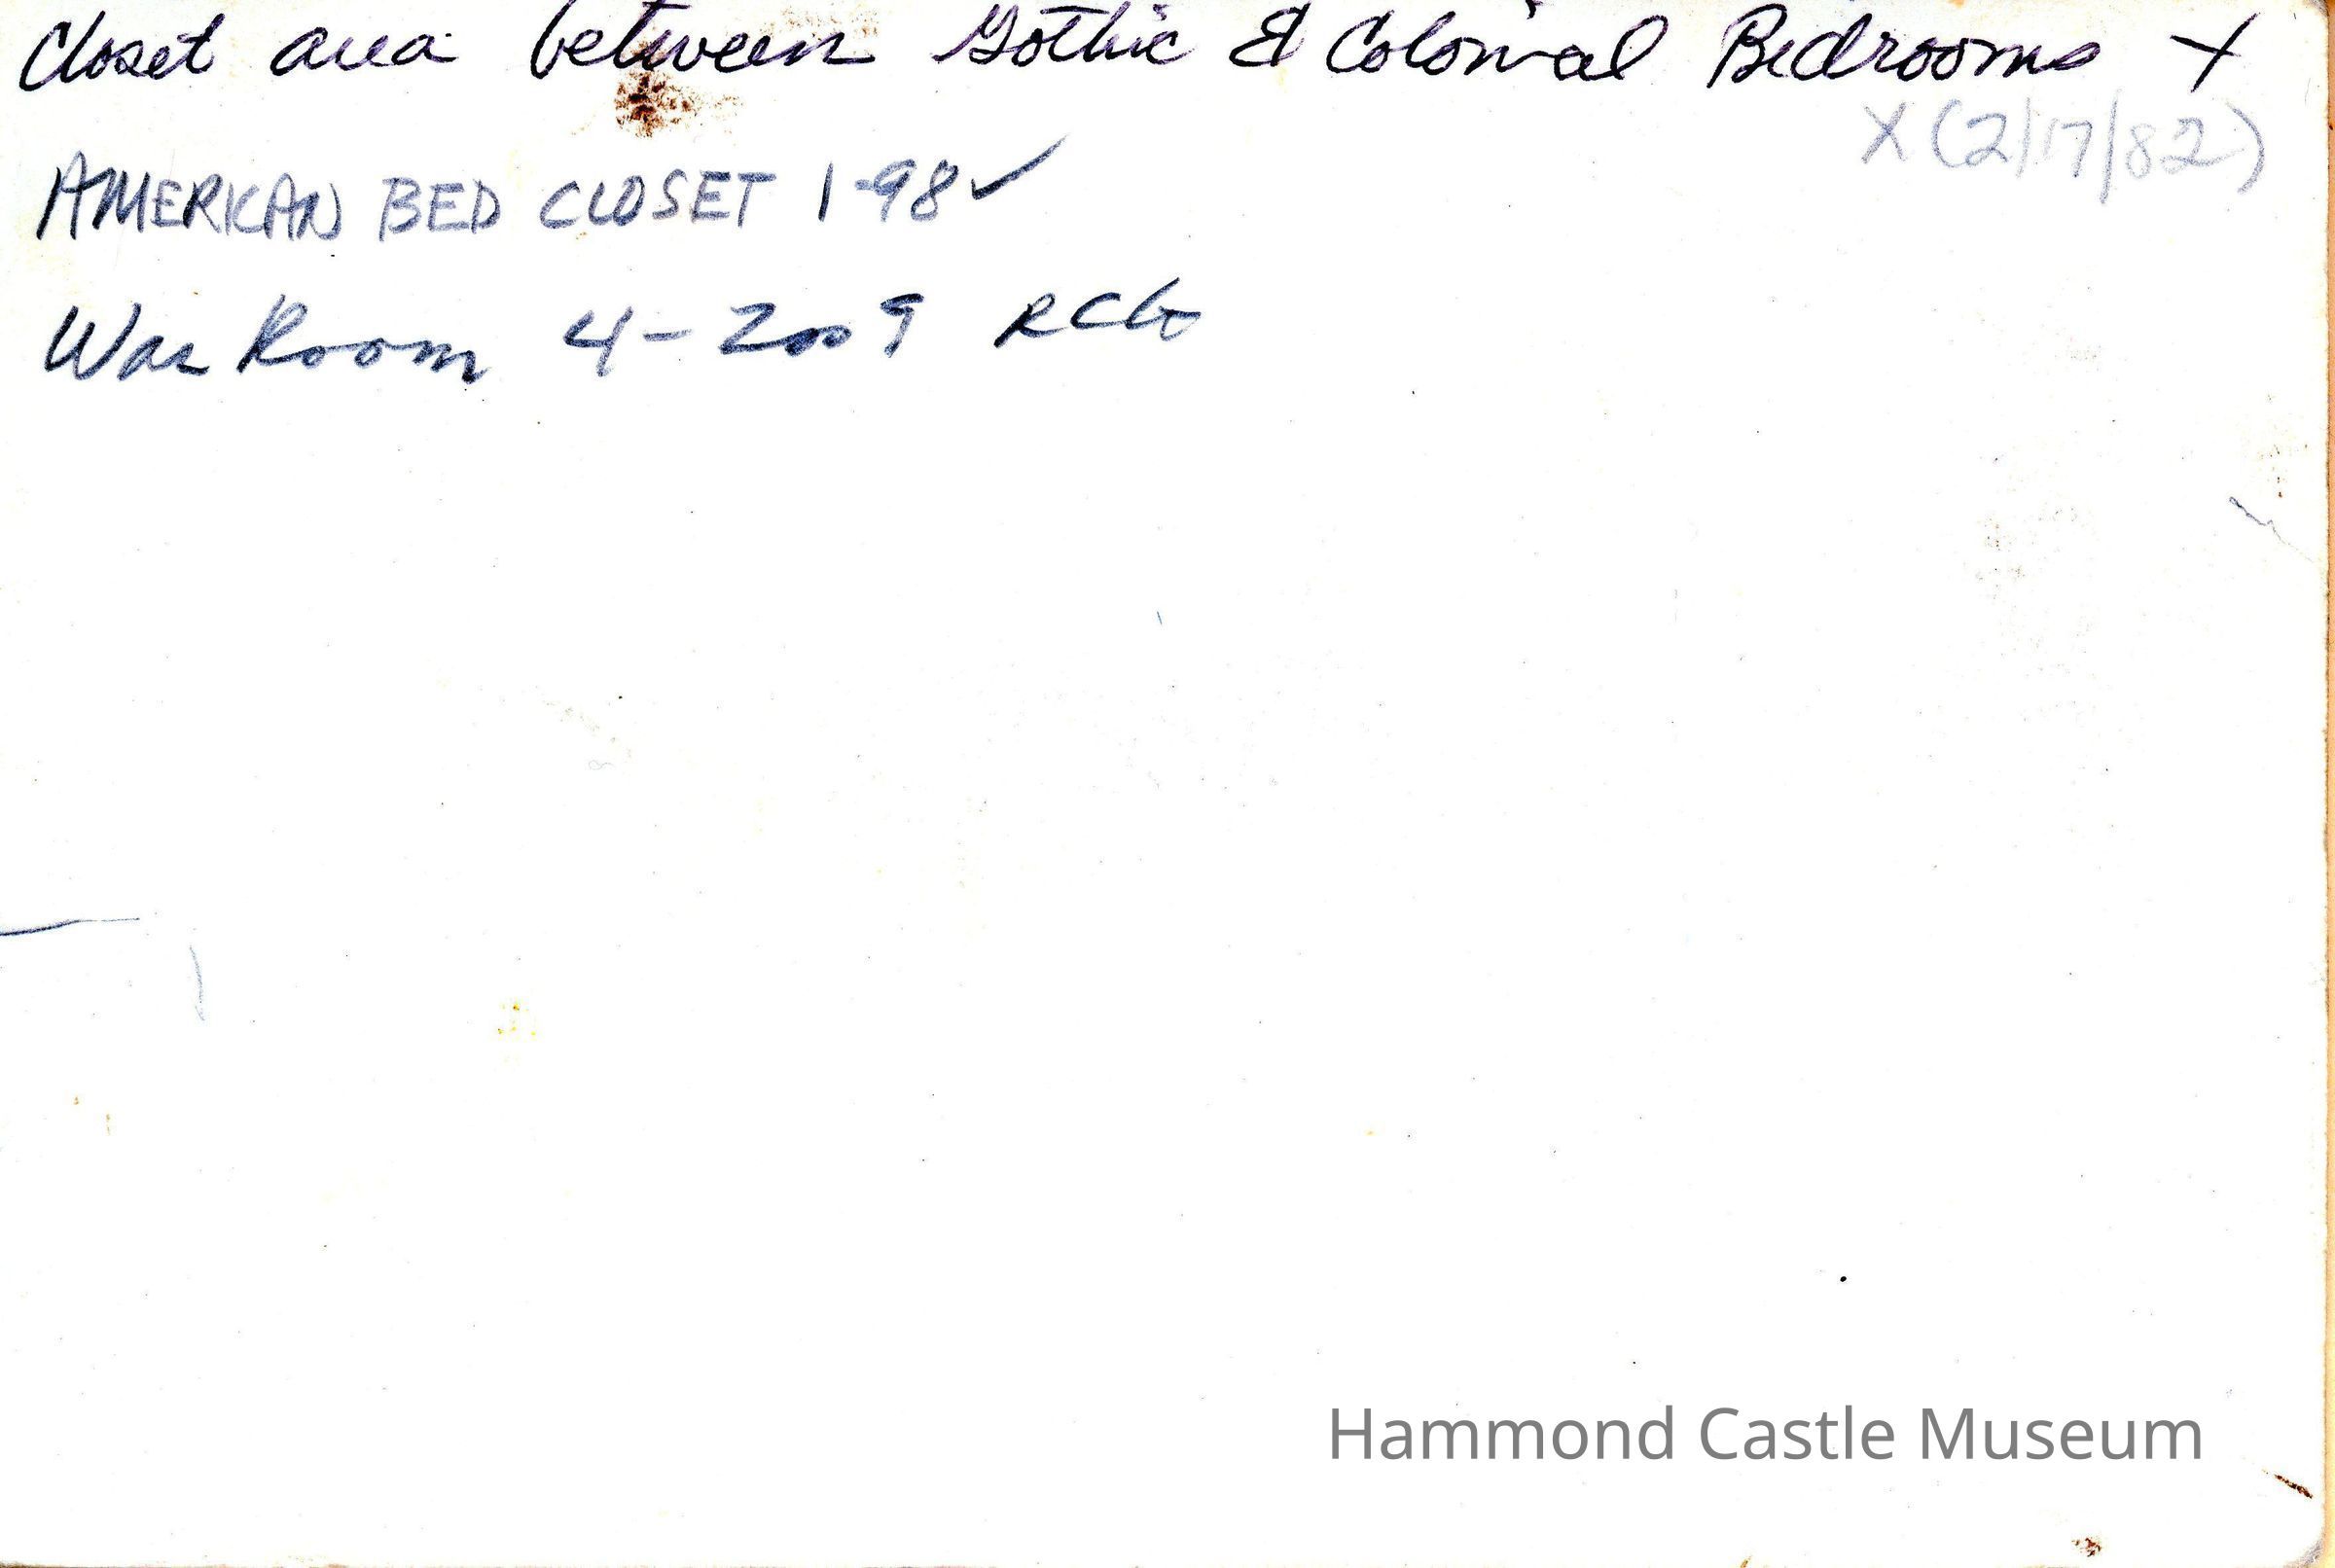 Closet area between Gothic & Colonial Bedrooms X
X (2/17/82)
AMERICAN BED CLOSET 1-98 ✓
War Room 4-2009 RCG
Hammond Castle Museum